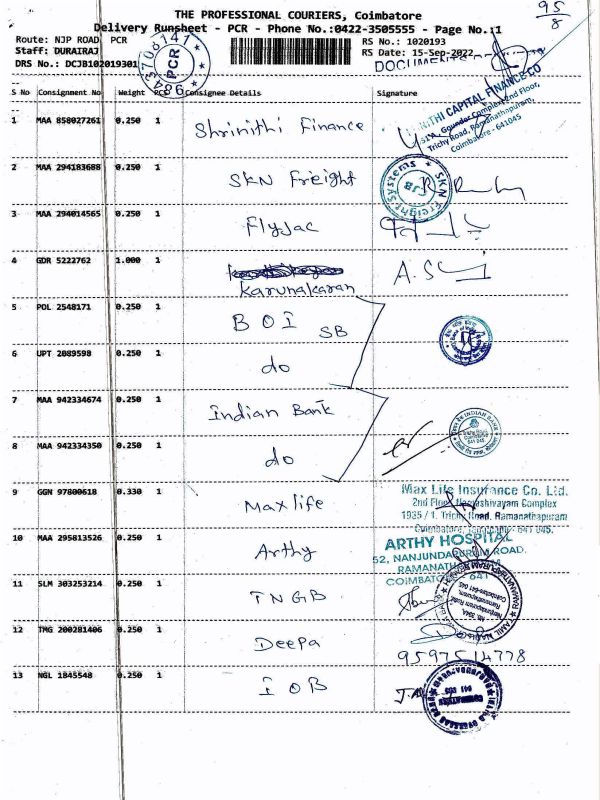 95/8
THE PROFESSIONAL COURIERS, Coimbatore
Delivery Runsheet - PCR - Phone No.:0422-3505555 - Page No.:1
Route: NJP ROAD PCR
Staff: DURAIRAJ
DRS No.: DCJB102019301
PCR
RS No.: 1020193
RS Date: 15-Sep-2022
DOCUMENTS
S No Consignment No Weight PCS Consignee Details Signature
1 MAA 858027261 0.250 1 Shrinithi Finance
CAPITAL FINANCE CO
Trichy Road, Ramanathapuram,
Coimbatore - 641045
2 MAA 294183688 0.250 1 SKN Freight
SKN Freight Systems CJB
3 MAA 294014565 0.250 1 Flyjac
4 GDR 5222762 1.000 1 Karunakaran
5 POL 2548171 0.250 1 BOI SB
6 UPT 2089598 0.250 1 do
7 MAA 942334674 0.250 1 Indian Bank
INDIAN BANK
8 MAA 942334350 0.250 1 do
9 GGN 97800618 0.330 1 Maxlife
Max Life Insurance Co. Ltd.
2nd Floor, Complex
1935 / 1. Trichy Road. Ramanathapuram
Coimbatore, 641 045.
10 MAA 295813526 0.250 1 Arthy
ARTHY HOSPITAL
52, NANJUNDAPURAM ROAD.
11 SLM 303253214 0.250 1 TNGB
12 TMG 200281406 0.250 1 Deepa
9597514778
13 NGL 1845548 0.250 1 IOB